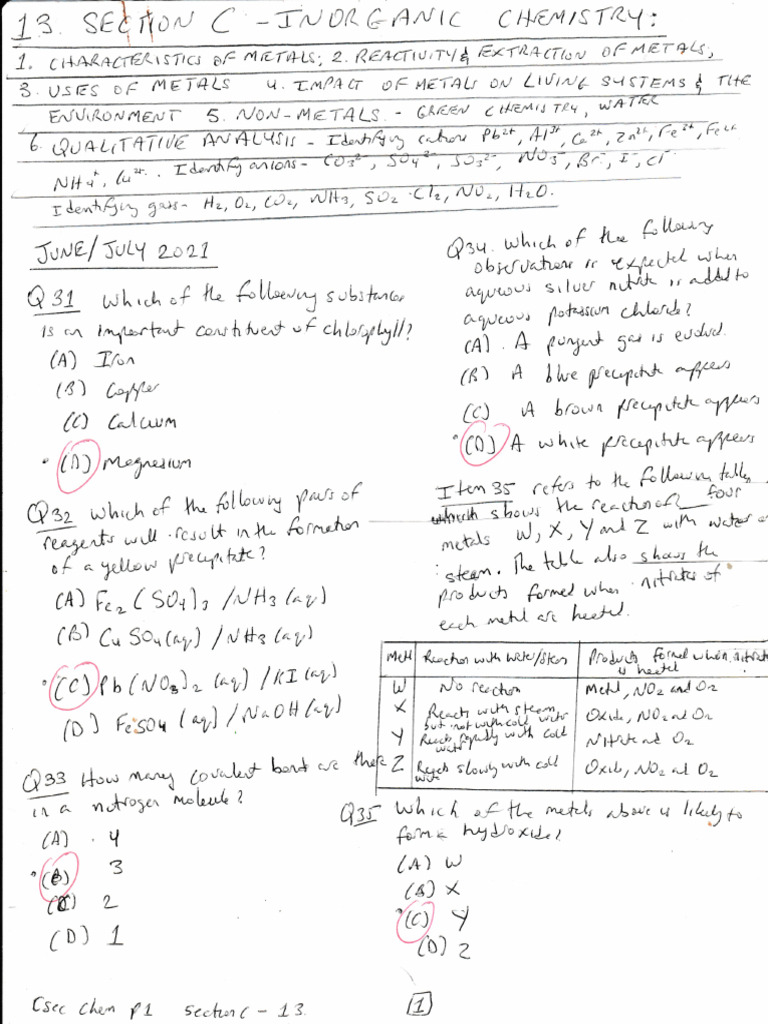 13. SECTION C - INORGANIC CHEMISTRY:
1. CHARACTERISTICS OF METALS; 2. REACTIVITY & EXTRACTION OF METALS;
3. USES OF METALS 4. IMPACT OF METALS ON LIVING SYSTEMS & THE
ENVIRONMENT 5. NON-METALS - GREEN CHEMISTRY, WATER
6. QUALITATIVE ANALYSIS - Identifying cations Pb²⁺, Al³⁺, Ca²⁺, Zn²⁺, Fe²⁺, Fe
NH₄⁺, Cu²⁺. Identify anions - CO₃²⁻, SO₄²⁻, SO₃²⁻, NO₃⁻, Br⁻, I⁻, Cl⁻
Identifying gases - H₂, O₂, CO₂, NH₃, SO₂ Cl₂, NO₂, H₂O.
JUNE/JULY 2021
Q31 Which of the following substances
is an important constituent of chlorophyll?
(A) Iron
(B) Copper
(C) Calcium
(D) Magnesium
Q32 Which of the following pairs of
reagents will result in the formation
of a yellow precipitate?
(A) Fe₂(SO₄)₃ / NH₃ (aq)
(B) CuSO₄(aq) / NH₃ (aq)
(C) Pb(NO₃)₂ (aq) / KI (aq)
(D) FeSO₄ (aq) / NaOH (aq)
Q33 How many covalent bond are there
in a nitrogen molecule?
(A) 4
(B) 3
(C) 2
(D) 1
Q34. Which of the following
observations is expected when
aqueous silver nitrate is added to
aqueous potassium chloride?
(A). A pungent gas is evolved.
(B) A blue precipitate appears
(C) A brown precipitate appears
(D) A white precipitate appears
Item 35 refers to the following table
which shows the reaction of four
metals W, X, Y and Z with water or
steam. The table also shows the
products formed when nitrates of
each metal are heated.
Metl Reaction with water/steam Products formed when nitrate is heated
W No reaction Metal, NO₂ and O₂
X Reacts with steam but not with cold water Oxide, NO₂ and O₂
Y Reacts rapidly with cold water Nitrate and O₂
Z Reacts slowly with cold water Oxide, NO₂ and O₂
Q35 Which of the metals above is likely to
form a hydroxide?
(A) W
(B) X
(C) Y
(D) Z
Csec Chem P1 Section C - 13.
1